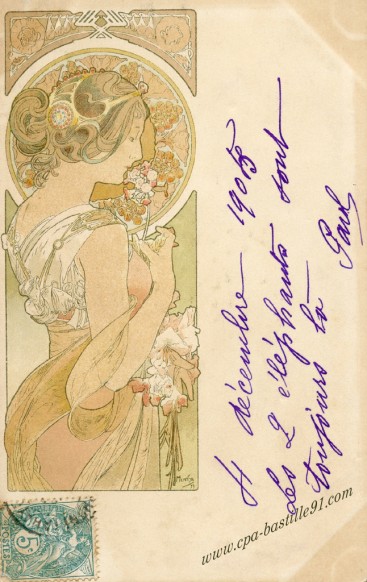 4 décembre 1903
Les 2 éléphants sont
toujours là
Paul
Mucha
5c
POSTES
www.cpa-bastille91.com